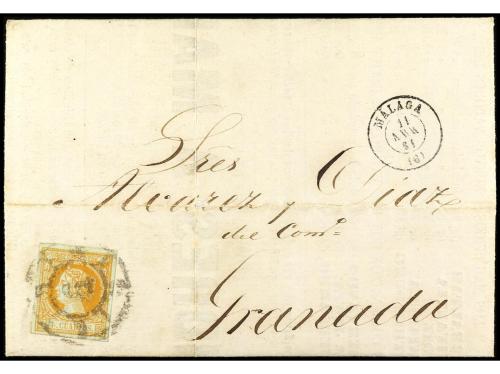 MALAGA
11
61
(6)
Sres
Alvarez y Diaz
del Comº
Granada
CUARTOS